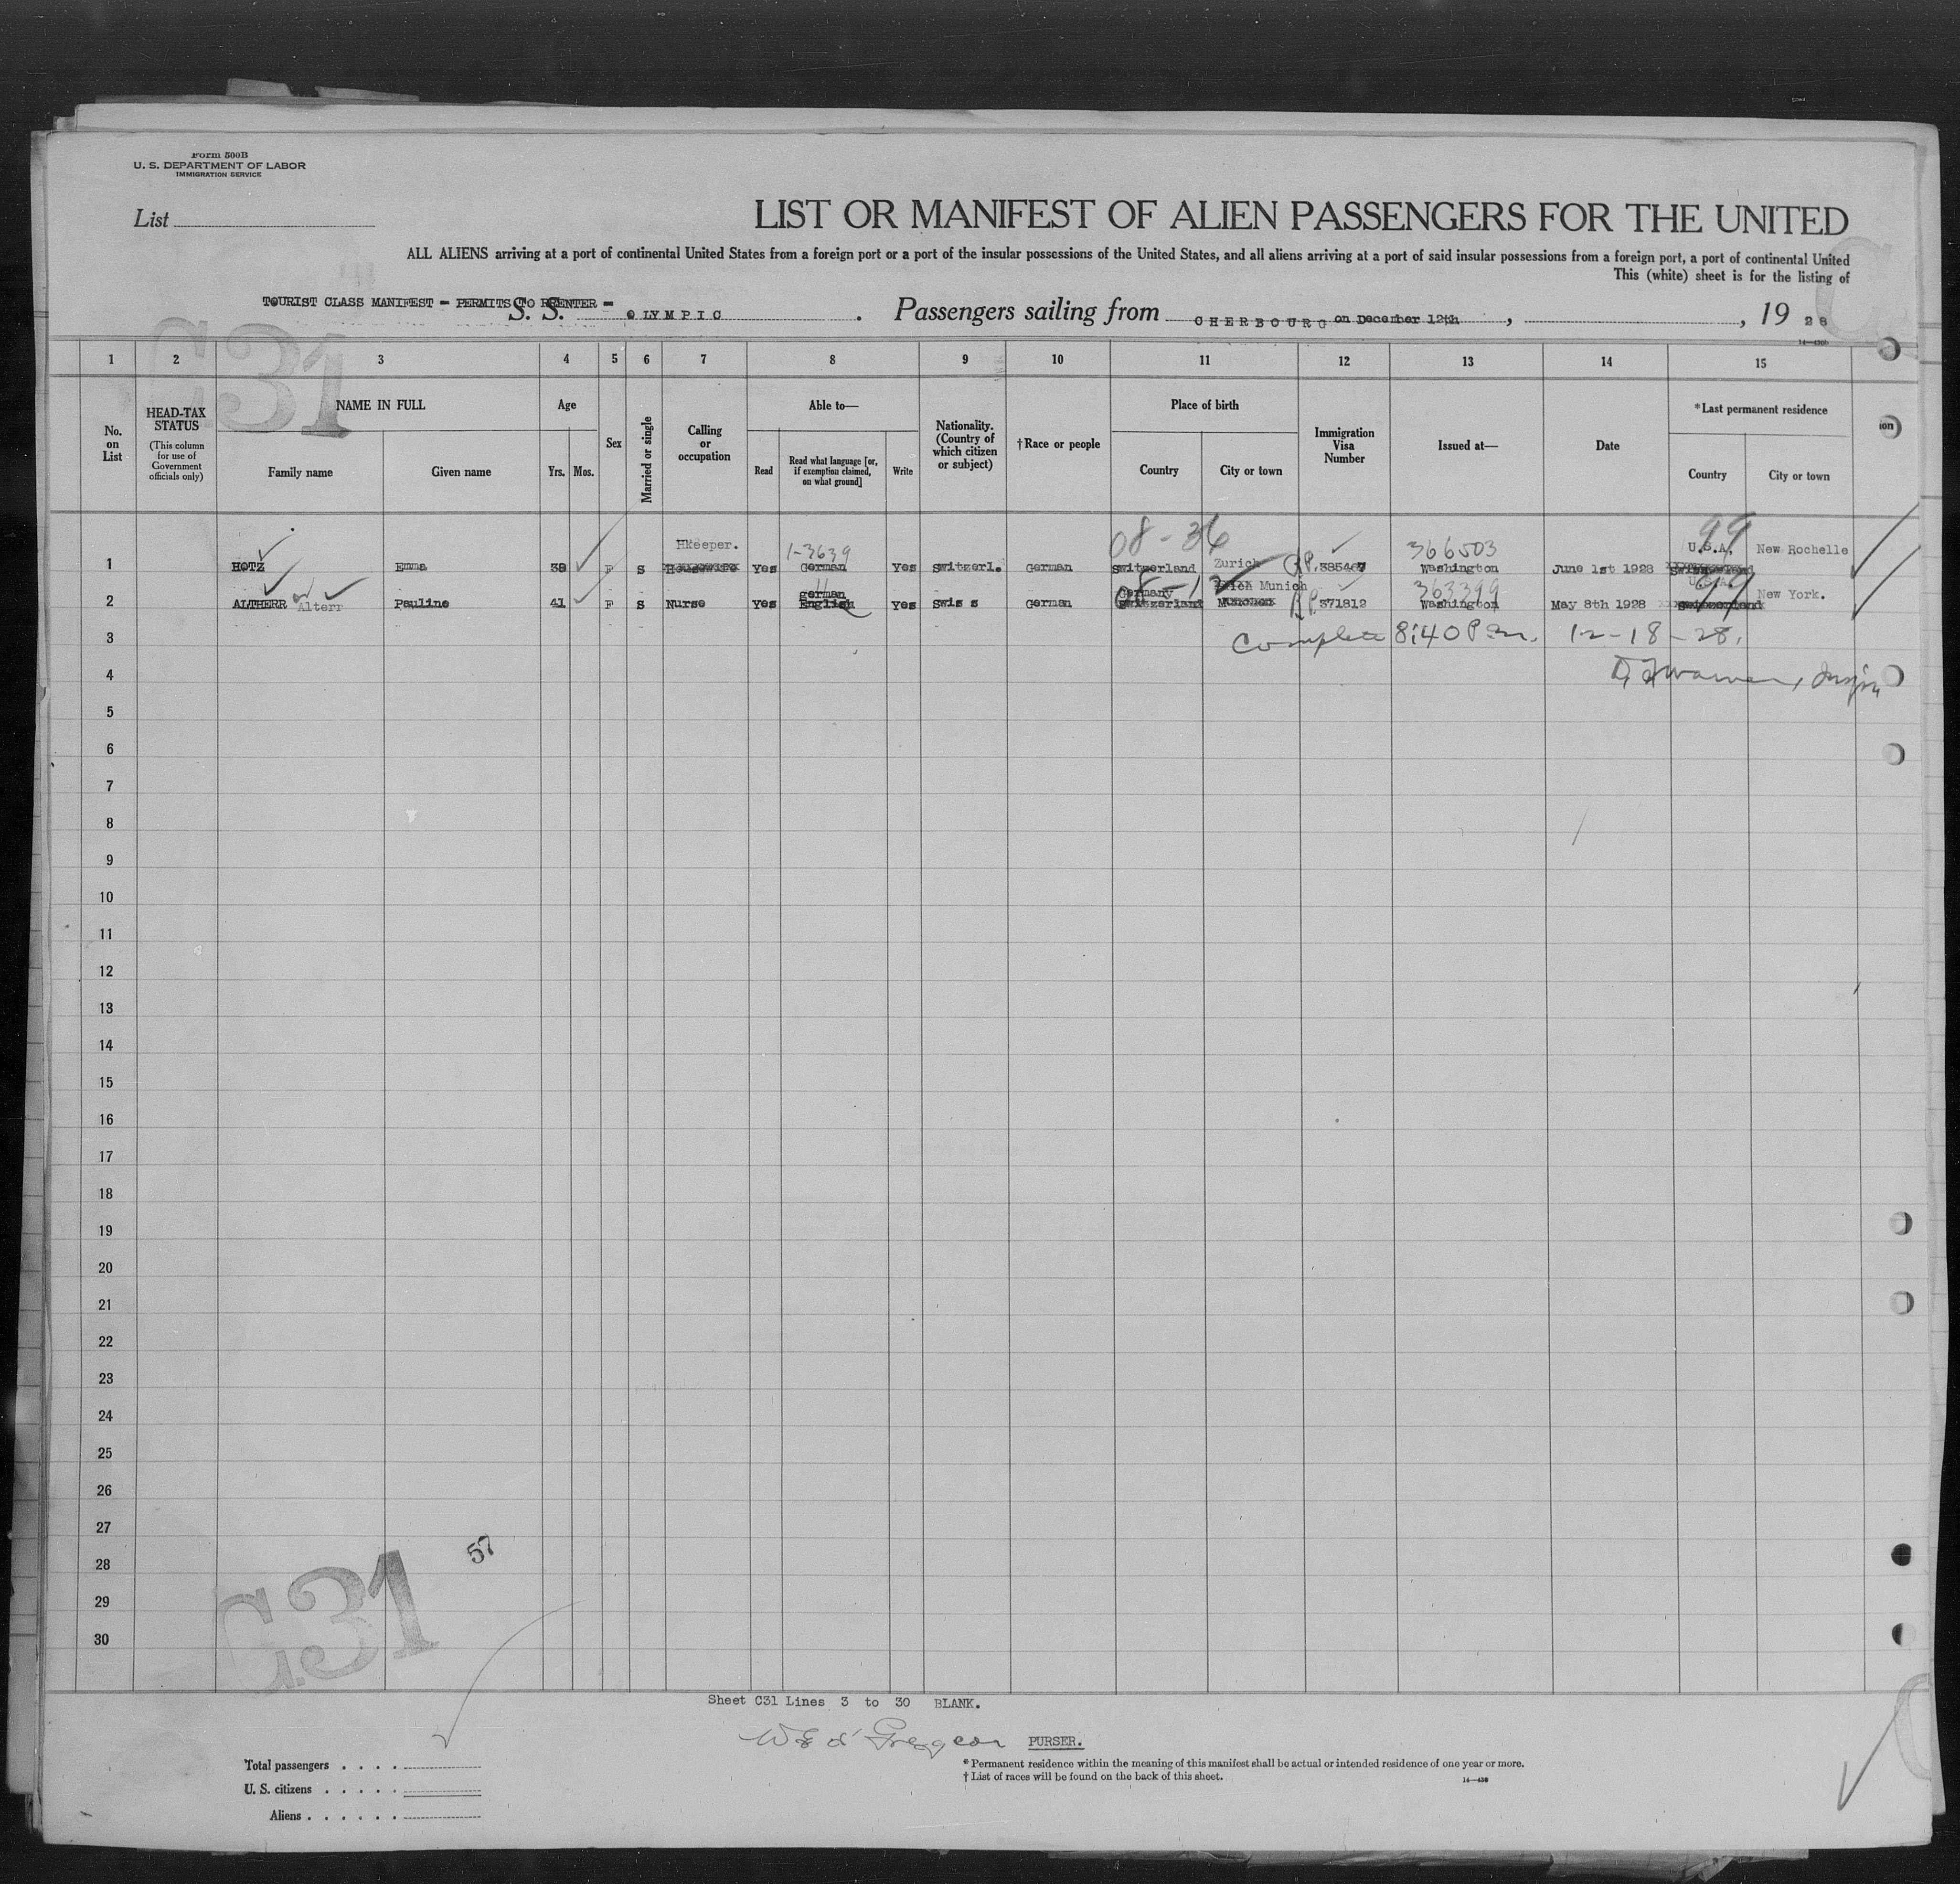 Form 500B
U. S. DEPARTMENT OF LABOR
IMMIGRATION SERVICE
List
LIST OR MANIFEST OF ALIEN PASSENGERS FOR THE UNITED
ALL ALIENS arriving at a port of continental United States from a foreign port or a part of the insular possessions of the United States, and all aliens arriving at a port of said insular possessions from a foreign port, a port of continental United
This (white) sheet is for the listing of
TOURIST CLASS MANIFEST - PERMITS TO REENTER -
S. S. OLYMPIC. Passengers sailing from CHERBOURG on December 12th, , 1928
C31
1 2 3 4 5 6 7 8 9 10 11 12 13 14 15
No. on List
HEAD-TAX STATUS
(This column for use of Government officials only)
NAME IN FULL
Family name
Given name
Age
Yrs.
Mos.
Sex
Married or single
Calling or occupation
Able to—
Read
Read what language [or, if exemption claimed, on what ground]
Write
Nationality. (Country of which citizen or subject)
†Race or people
Place of birth
Country
City or town
Immigration Visa Number
Issued at—
Date
*Last permanent residence
Country
City or town
ion
Hkeeper. 1-3639 08-36 366503 99 U.S.A. New Rochelle
1 HOTZ Emma 38 F S Housewife Yes German Yes Switzerl. German Switzerland Zurich R.P. 385467 Washington June 1st 1928 Switzerland
german Germany Munich 363399 U.S.A. New York.
2 ALTHERR or Alterr Pauline 41 F S Nurse Yes English Yes Swiss German Switzerland Munchen R.P. 371812 Washington May 8th 1928 Switzerland
3 Complete 8:40 P.m. 12-18-28.
4
5
6
7
8
9
10
11
12
13
14
15
16
17
18
19
20
21
22
23
24
25
26
27
28
29
30
57
C31
Sheet C31 Lines 3 to 30 BLANK.
PURSER.
Total passengers
U. S. citizens
Aliens
* Permanent residence within the meaning of this manifest shall be actual or intended residence of one year or more.
† List of races will be found on the back of this sheet.
14—430